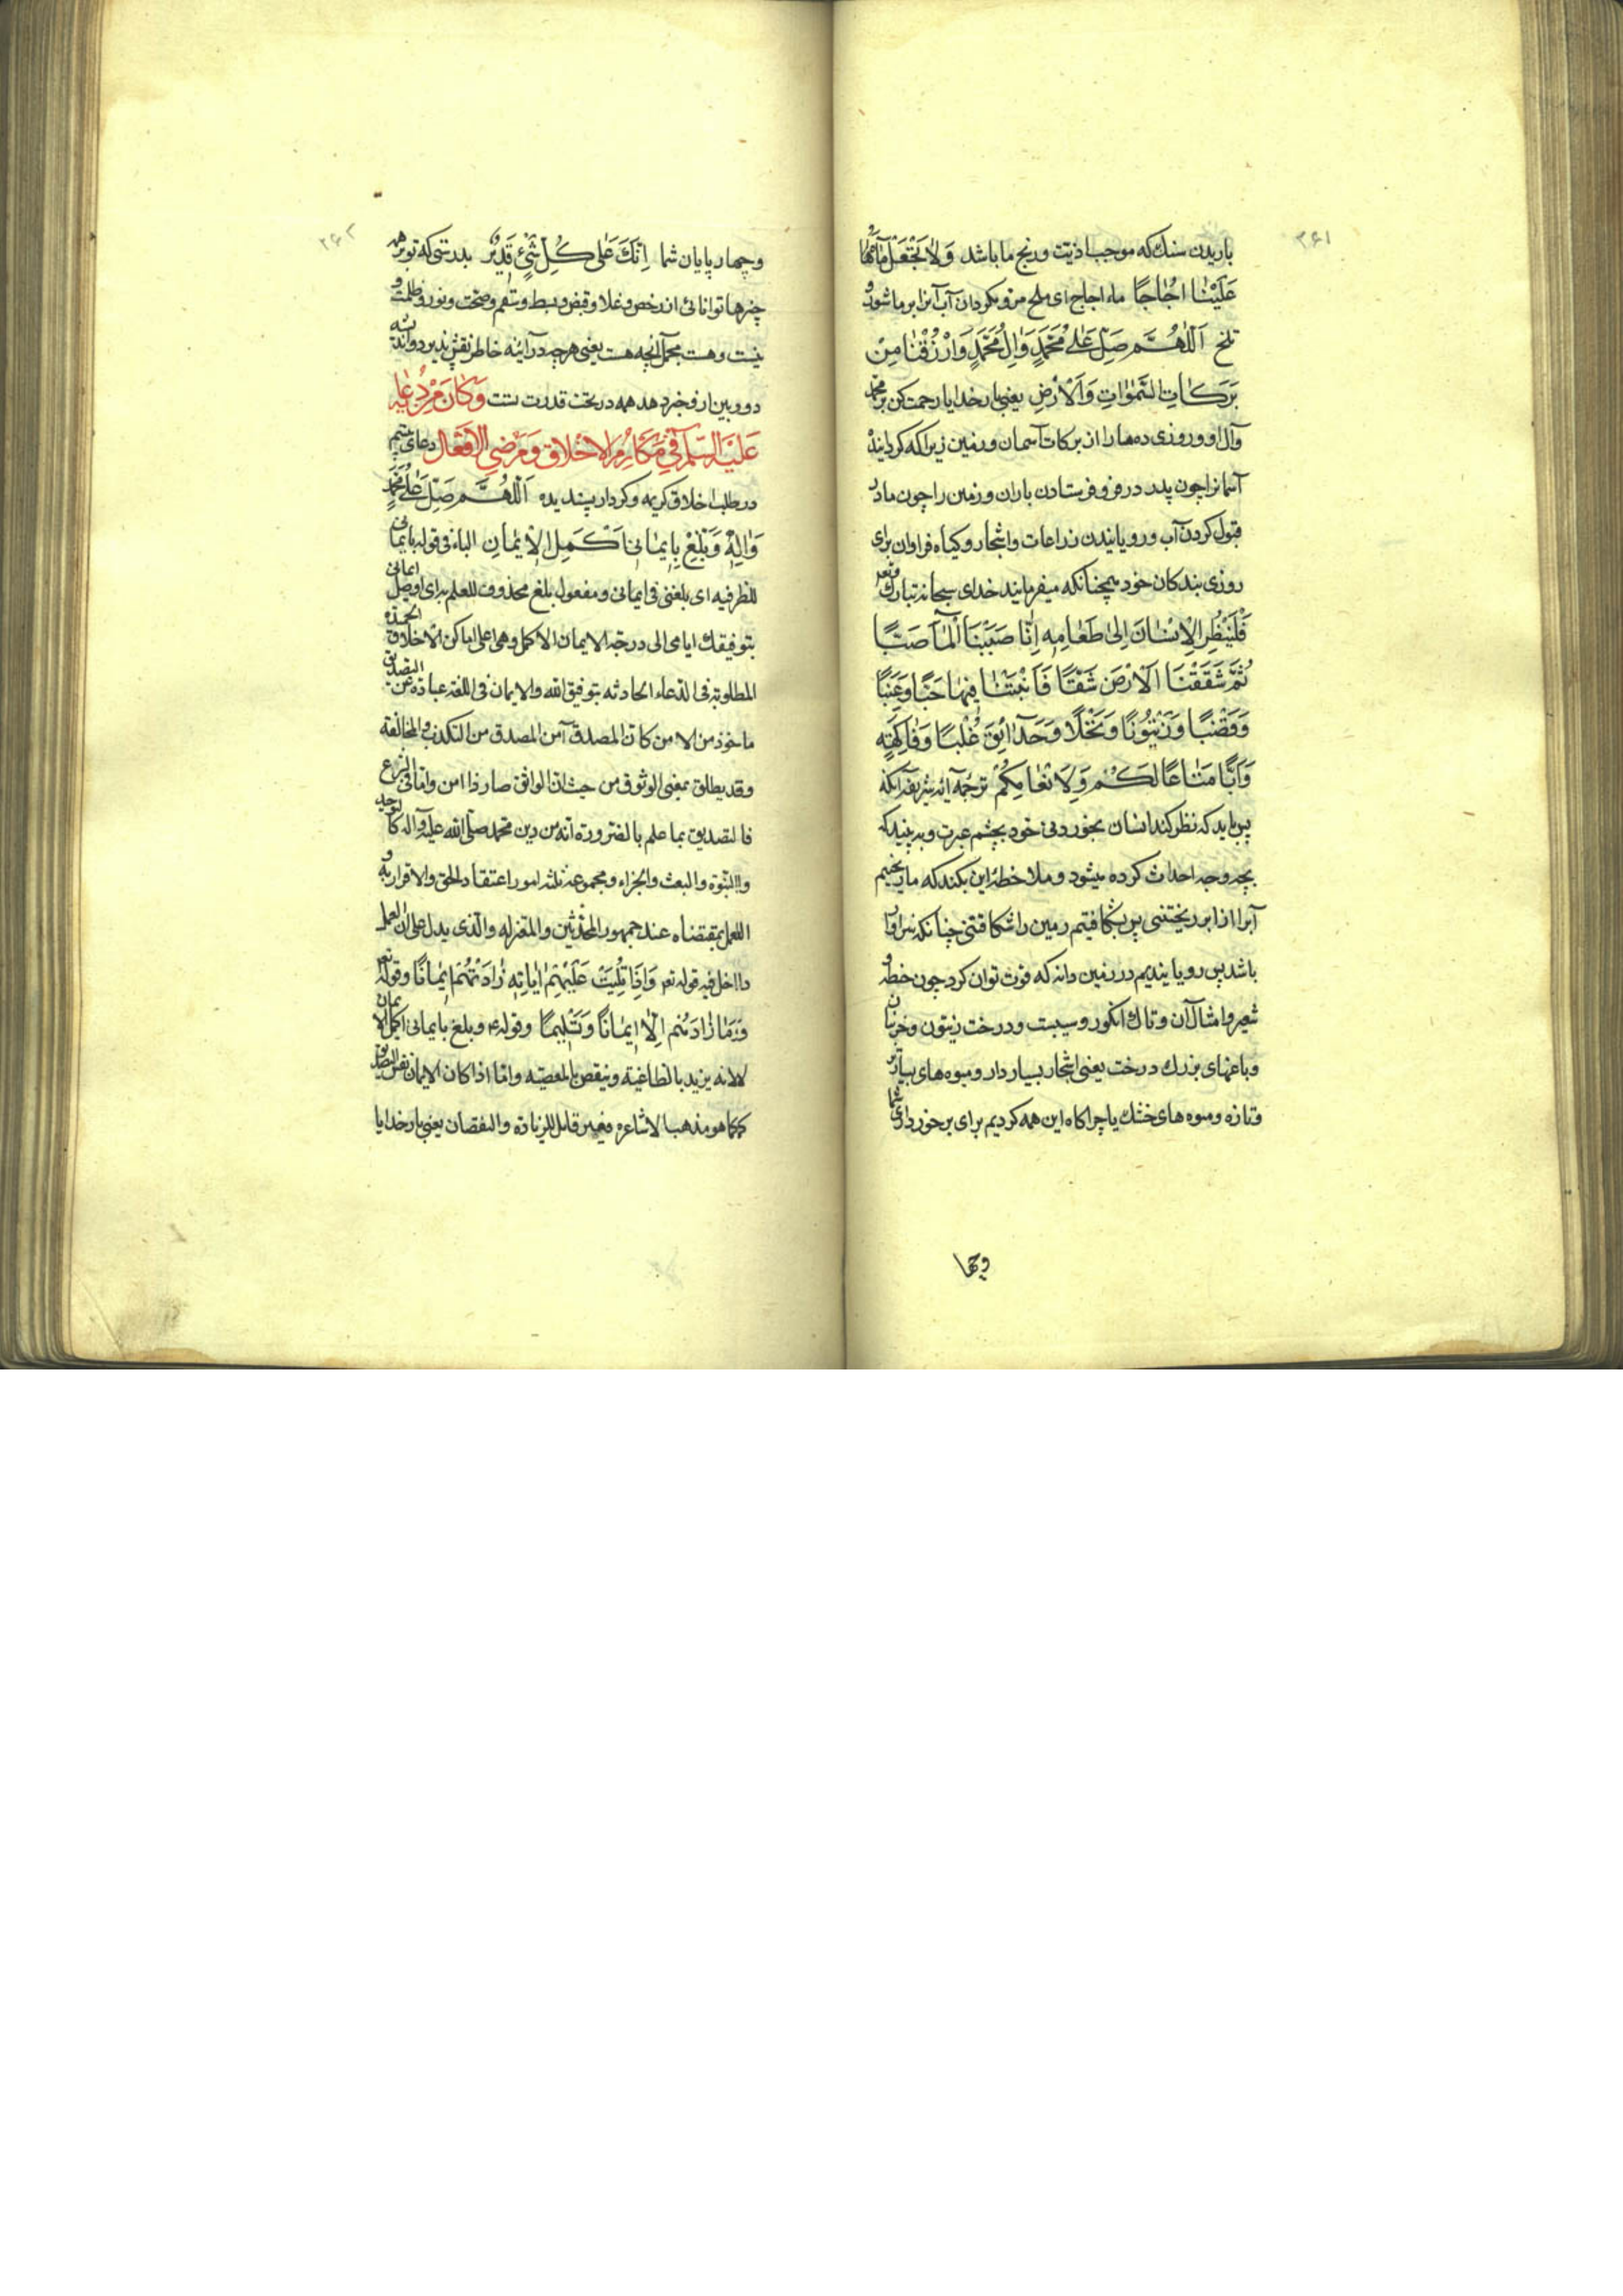 ۲۶۱
باریدن سنك که موجب اذیت و رنج ما باشد وَلَا تَجْعَلْ مَآءَهَا
عَلَیْنَا اُجَاجًا ماء اجاج ای ملح مر و مکردان آب آنرا بر ما شور و
تلخ اَللّٰهُمَّ صَلِّ عَلٰی مُحَمَّدٍ وَاٰلِ مُحَمَّدٍ وَارْزُقْنَا مِنْ
بَرَکَاتِ السَّمٰوَاتِ وَالْاَرْضِ یعنی بار خدایا رحمت کن بر محمد
وآل او و روزی ده ما را از برکات آسمان و زمین زیرا که کردانیدهٔ
آسمانرا چون پدر در فرستادن باران و زمین را چون مادر
قبول کردن آب و رویانیدن زراعات واشجار و کیاه فراوان برای
روزی بندکان خود همچنانکه میفرماید خدای سبحانه تبارك وتعر
فَلْیَنْظُرِ الْاِنْسَانُ اِلٰی طَعَامِهِ اِنَّا صَبَبْنَا الْمَآءَ صَبًّا
ثُمَّ شَقَقْنَا الْاَرْضَ شَقًّا فَاَنْبَتْنَا فِیهَا حَبًّا وَعِنَبًا
وَقَضْبًا وَزَیْتُونًا وَنَخْلًا وَحَدَآئِقَ غُلْبًا وَفَاکِهَةً
وَاَبًّا مَتَاعًا لَکُمْ وَلِاَنْعَامِکُمْ ترجمهٔ آیهٔ شریفه آنکه
پس باید که نظر کند انسان بخوردنی خود بچشم عبرت و به بیند که
بچه وجه احداث کرده میشود و ملاحظهٔ این بکند که ما ریختیم
آبرا از ابر ریختنی پس بشکافتیم زمین را شکافتنی چنانکه سزاوار
باشد پس رویانیدیم در زمین دانه که قوت توان کرد چون حنطه و
شعیر و امثال آن و تاك انکور و سبست و درخت زیتون و خرمابن
و باغهای بزرك درخت یعنی اشجار بسیار دار و میوه های بسیار تر
و تازه و میوه های خشك یا چراکاه این همه کردیم برای برخورداری شما
وچها
۲۶۲
وچهار پایان شما اِنَّكَ عَلٰی کُلِّ شَیْءٍ قَدِیرٌ بدرستی که تو بر همه
چیزها توانائی از رخص و غلا و قبض و بسط و سقم و صحت و نور و ظلمت و
نیست و هست مجمل آنچه هست یعنی هرچه در آینه خاطر نقش پذیرد و اندیشه
دوربین از و خبر دهد همه در تحت قدرت تست وَکَانَ مِنْ دُعَائِهِ
عَلَیْهِ السَّلٰمُ فِی مَکَارِمِ الْاَخْلَاقِ وَمَرْضِیِّ الْاَفْعَالِ دعای بیستم
در طلب اخلاق کریمه و کردار پسندیده اَللّٰهُمَّ صَلِّ عَلٰی مُحَمَّدٍ
وَاٰلِهِ وَبَلِّغْ بِاِیمَانِی اَکْمَلَ الْاِیمَانِ الباء فی قوله بایمانی
للظرفیه ای بلغنی فی ایمانی و مفعول بلغ محذوف للعلم به ای اوصل ایمانی
بتوفیقك ایامی الی درجة الایمان الاکمل وهی اعلی اماکن الاخلاق الحمیده
المطلوبة فی الدعاء الحادثه بتوفیق الله والایمان فی اللغة عبارة عن التصدیق
ماخوذ من الامن کان المصدق آمن المصدق من التکذیب والمخالفة
وقد یطلق بمعنی الوثوق من حیث ان الواثق صار ذا امن واما فی الشرع
فالتصدیق بما علم بالضرورة انه من دین محمد صلی الله علیه وآله کالتوحید
والنبوة والبعث والجزاء ومجموعه ثلثة امور اعتقاد الحق والاقرار به و
العمل بمقتضاه عند جمهور المحدثین والمعتزله والذی یدل علی ان العمل
داخل فیه قوله تعر وَاِذَا تُلِیَتْ عَلَیْهِمْ اٰیَاتُهُ زَادَتْهُمْ اِیمَانًا وقوله تعر
وَمَا زَادَهُمْ اِلَّا اِیمَانًا وَتَسْلِیمًا وقوله ع وبلغ بایمانی اکمل الایمان
لانه یزید بالطاعة وینقص بالمعصیه واما اذا کان الایمان نفس التصدیق
کما هو مذهب الاشاعره فغیر قابل للزیادة والنقصان یعنی بار خدایا